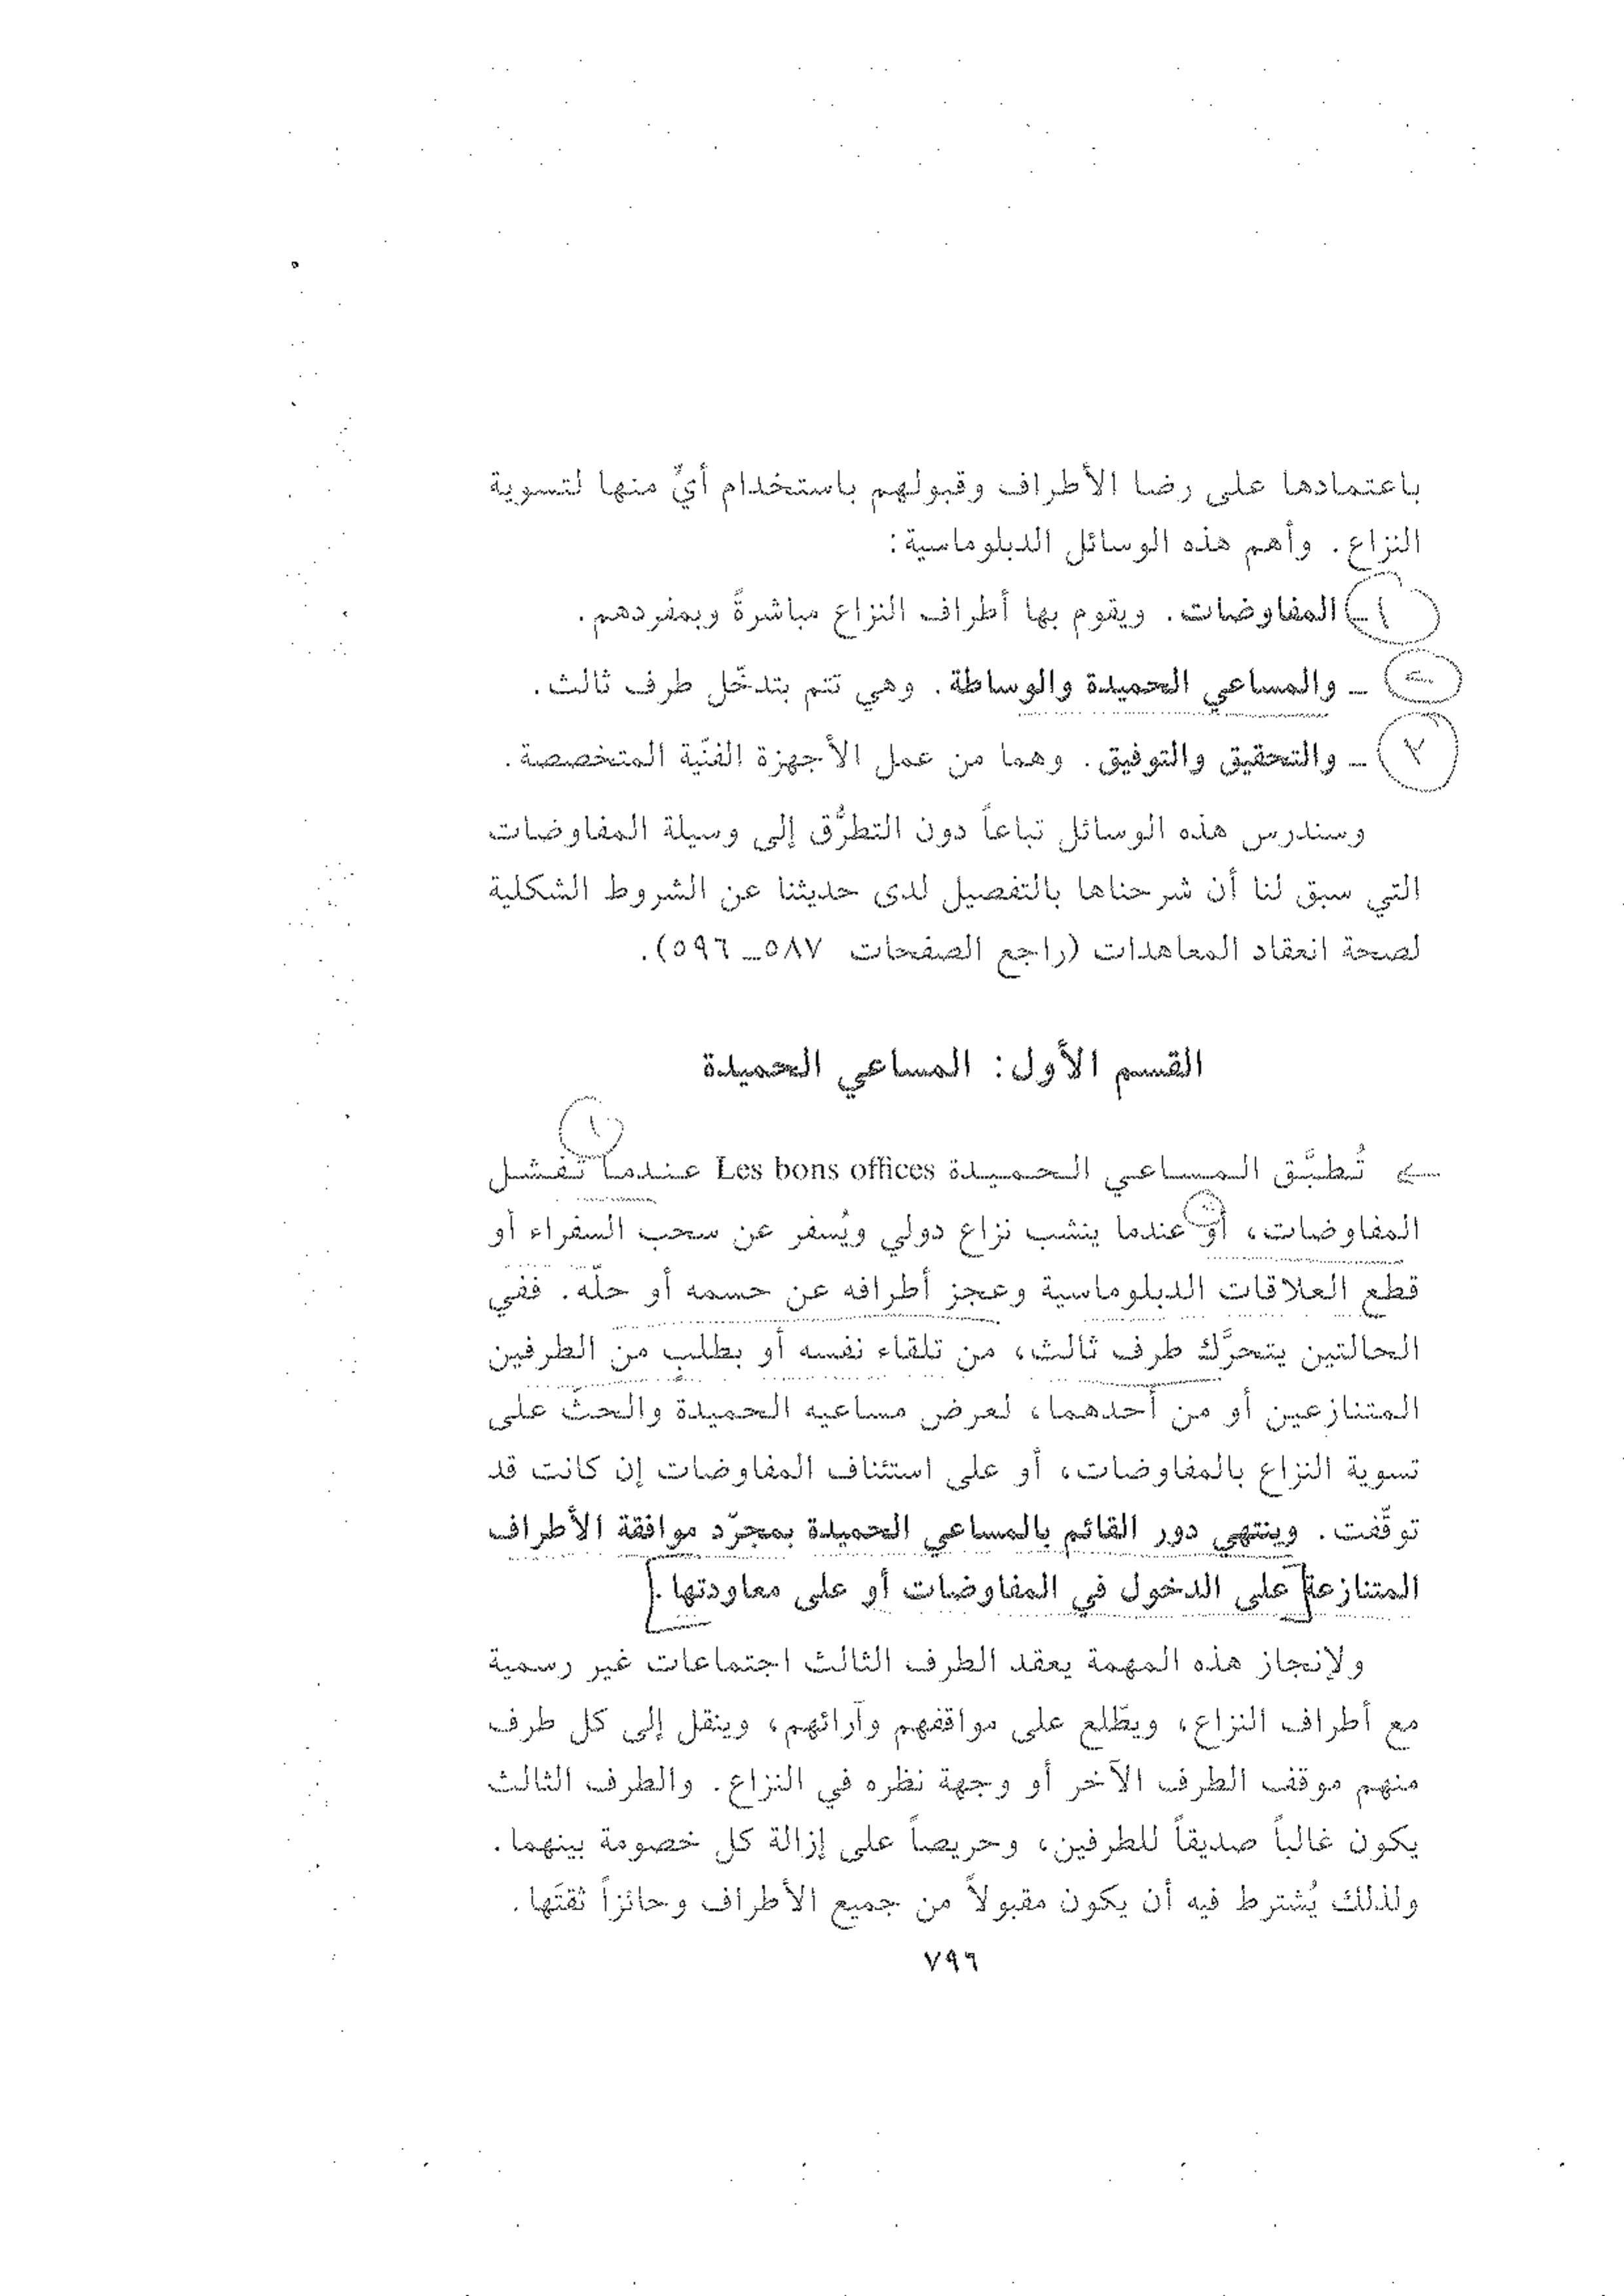 باعتمادها على رضا الأطراف وقبولهم باستخدام أيٍّ منها لتسوية
النزاع. وأهم هذه الوسائل الدبلوماسية:
١ـ المفاوضات. ويقوم بها أطراف النزاع مباشرةً وبمفردهم.
ـ والمساعي الحميدة والوساطة. وهي تتم بتدخّل طرف ثالث.
ـ والتحقيق والتوفيق. وهما من عمل الأجهزة الفنّية المتخصصة.
وسندرس هذه الوسائل تباعاً دون التطرُّق إلى وسيلة المفاوضات
التي سبق لنا أن شرحناها بالتفصيل لدى حديثنا عن الشروط الشكلية
لصحة انعقاد المعاهدات (راجع الصفحات ٥٨٧ـ ٥٩٦).
القسم الأول: المساعي الحميدة
١
تُطبَّق المساعي الحميدة Les bons offices عندما تفشل
المفاوضات، أو عندما ينشب نزاع دولي ويُسفر عن سحب السفراء أو
قطع العلاقات الدبلوماسية وعجز أطرافه عن حسمه أو حلّه. ففي
الحالتين يتحرَّك طرف ثالث، من تلقاء نفسه أو بطلب من الطرفين
المتنازعين أو من أحدهما، لعرض مساعيه الحميدة والحثّ على
تسوية النزاع بالمفاوضات، أو على استئناف المفاوضات إن كانت قد
توقّفت. وينتهي دور القائم بالمساعي الحميدة بمجرّد موافقة الأطراف
المتنازعة على الدخول في المفاوضات أو على معاودتها.
ولإنجاز هذه المهمة يعقد الطرف الثالث اجتماعات غير رسمية
مع أطراف النزاع، ويطّلع على مواقفهم وآرائهم، وينقل إلى كل طرف
منهم موقف الطرف الآخر أو وجهة نظره في النزاع. والطرف الثالث
يكون غالباً صديقاً للطرفين، وحريصاً على إزالة كل خصومة بينهما.
ولذلك يُشترط فيه أن يكون مقبولاً من جميع الأطراف وحائزاً ثقتَها.
٧٩٦